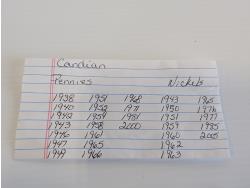 Candian
Pennies Nickels
1938 1951 1968 1943 1965
1940 1952 1971 1950 1976
1942 1954 1981 1951 1977
1943 1958 2000 1959 1985
1946 1961 1960 2005
1947 1965 1962
1949 1966 1963